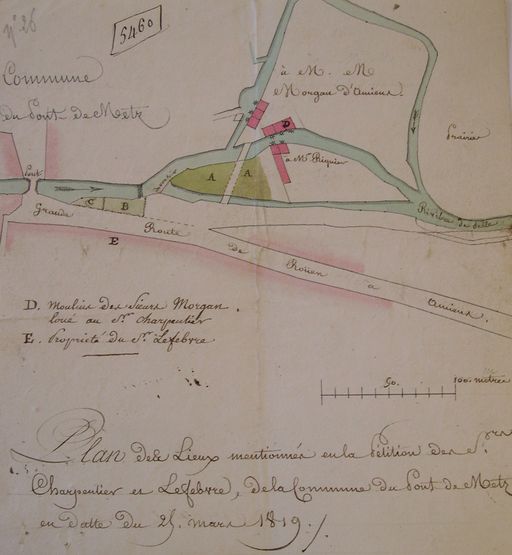 n.° 26
5460
Commune
du Pont de Metz
à M. M
Morgan d'Amiens.
D
Prairie
à Mr Riquier
Pont
A A
C B
Rivière de Selle
Grande Route de Rouen à Amiens.
E
D. Moulins des Sieurs Morgan.
loué au Sr. Charpentier
E. Propriété du Sr. Lefebvre
50. 100. mètres
Plan des Lieux mentionnés en la Pétition des Srs
Charpentier et Lefebvre, de la Commune du Pont de Metz
en datte du 25. mars 1819./.